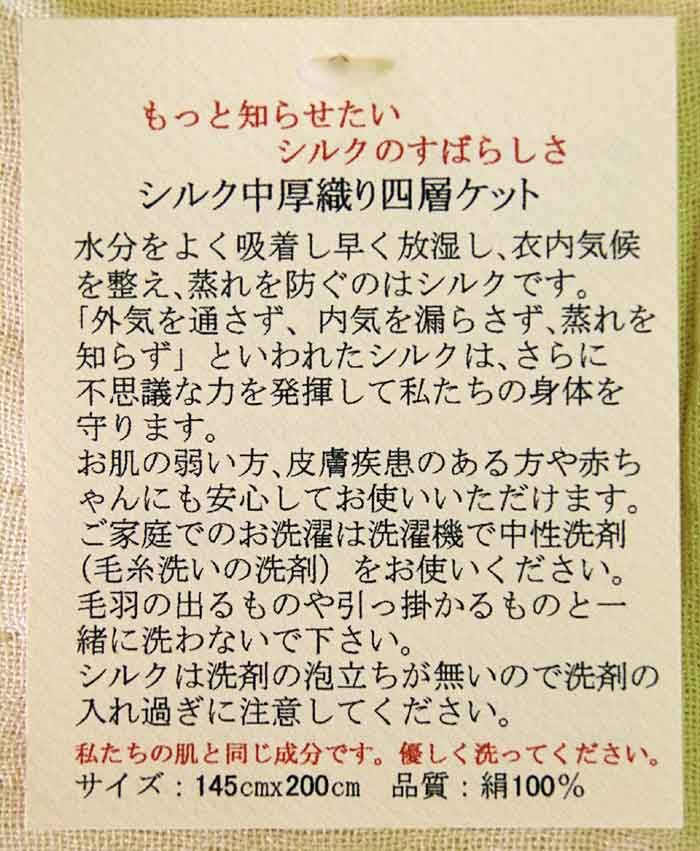 もっと知らせたい
シルクのすばらしさ
シルク中厚織り四層ケット
水分をよく吸着し早く放湿し、衣内気候
を整え、蒸れを防ぐのはシルクです。
「外気を通さず、内気を漏らさず、蒸れを
知らず」といわれたシルクは、さらに
不思議な力を発揮して私たちの身体を
守ります。
お肌の弱い方、皮膚疾患のある方や赤ち
ゃんにも安心してお使いいただけます。
ご家庭でのお洗濯は洗濯機で中性洗剤
(毛糸洗いの洗剤)をお使いください。
毛羽の出るものや引っ掛かるものと一
緒に洗わないで下さい。
シルクは洗剤の泡立ちが無いので洗剤の
入れ過ぎに注意してください。
私たちの肌と同じ成分です。優しく洗ってください。
サイズ：145cmx200cm 品質：絹100%